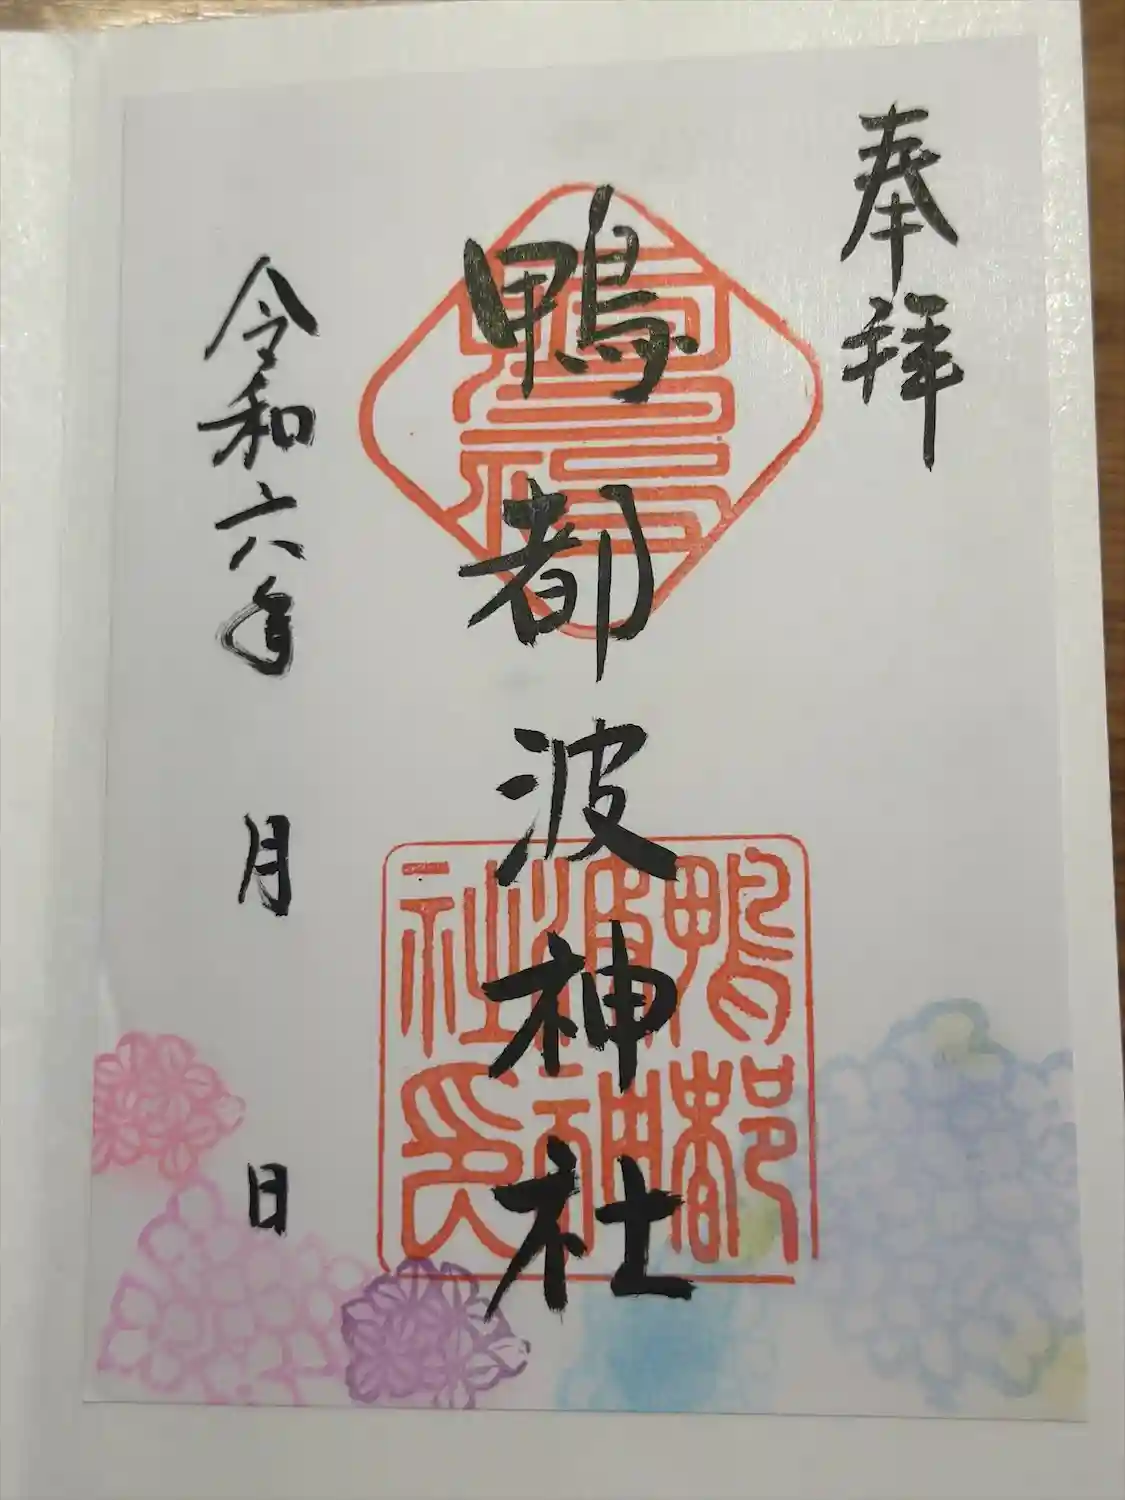 奉拝
鴨都波神社
鴨都波神社印
令和六年 月 日